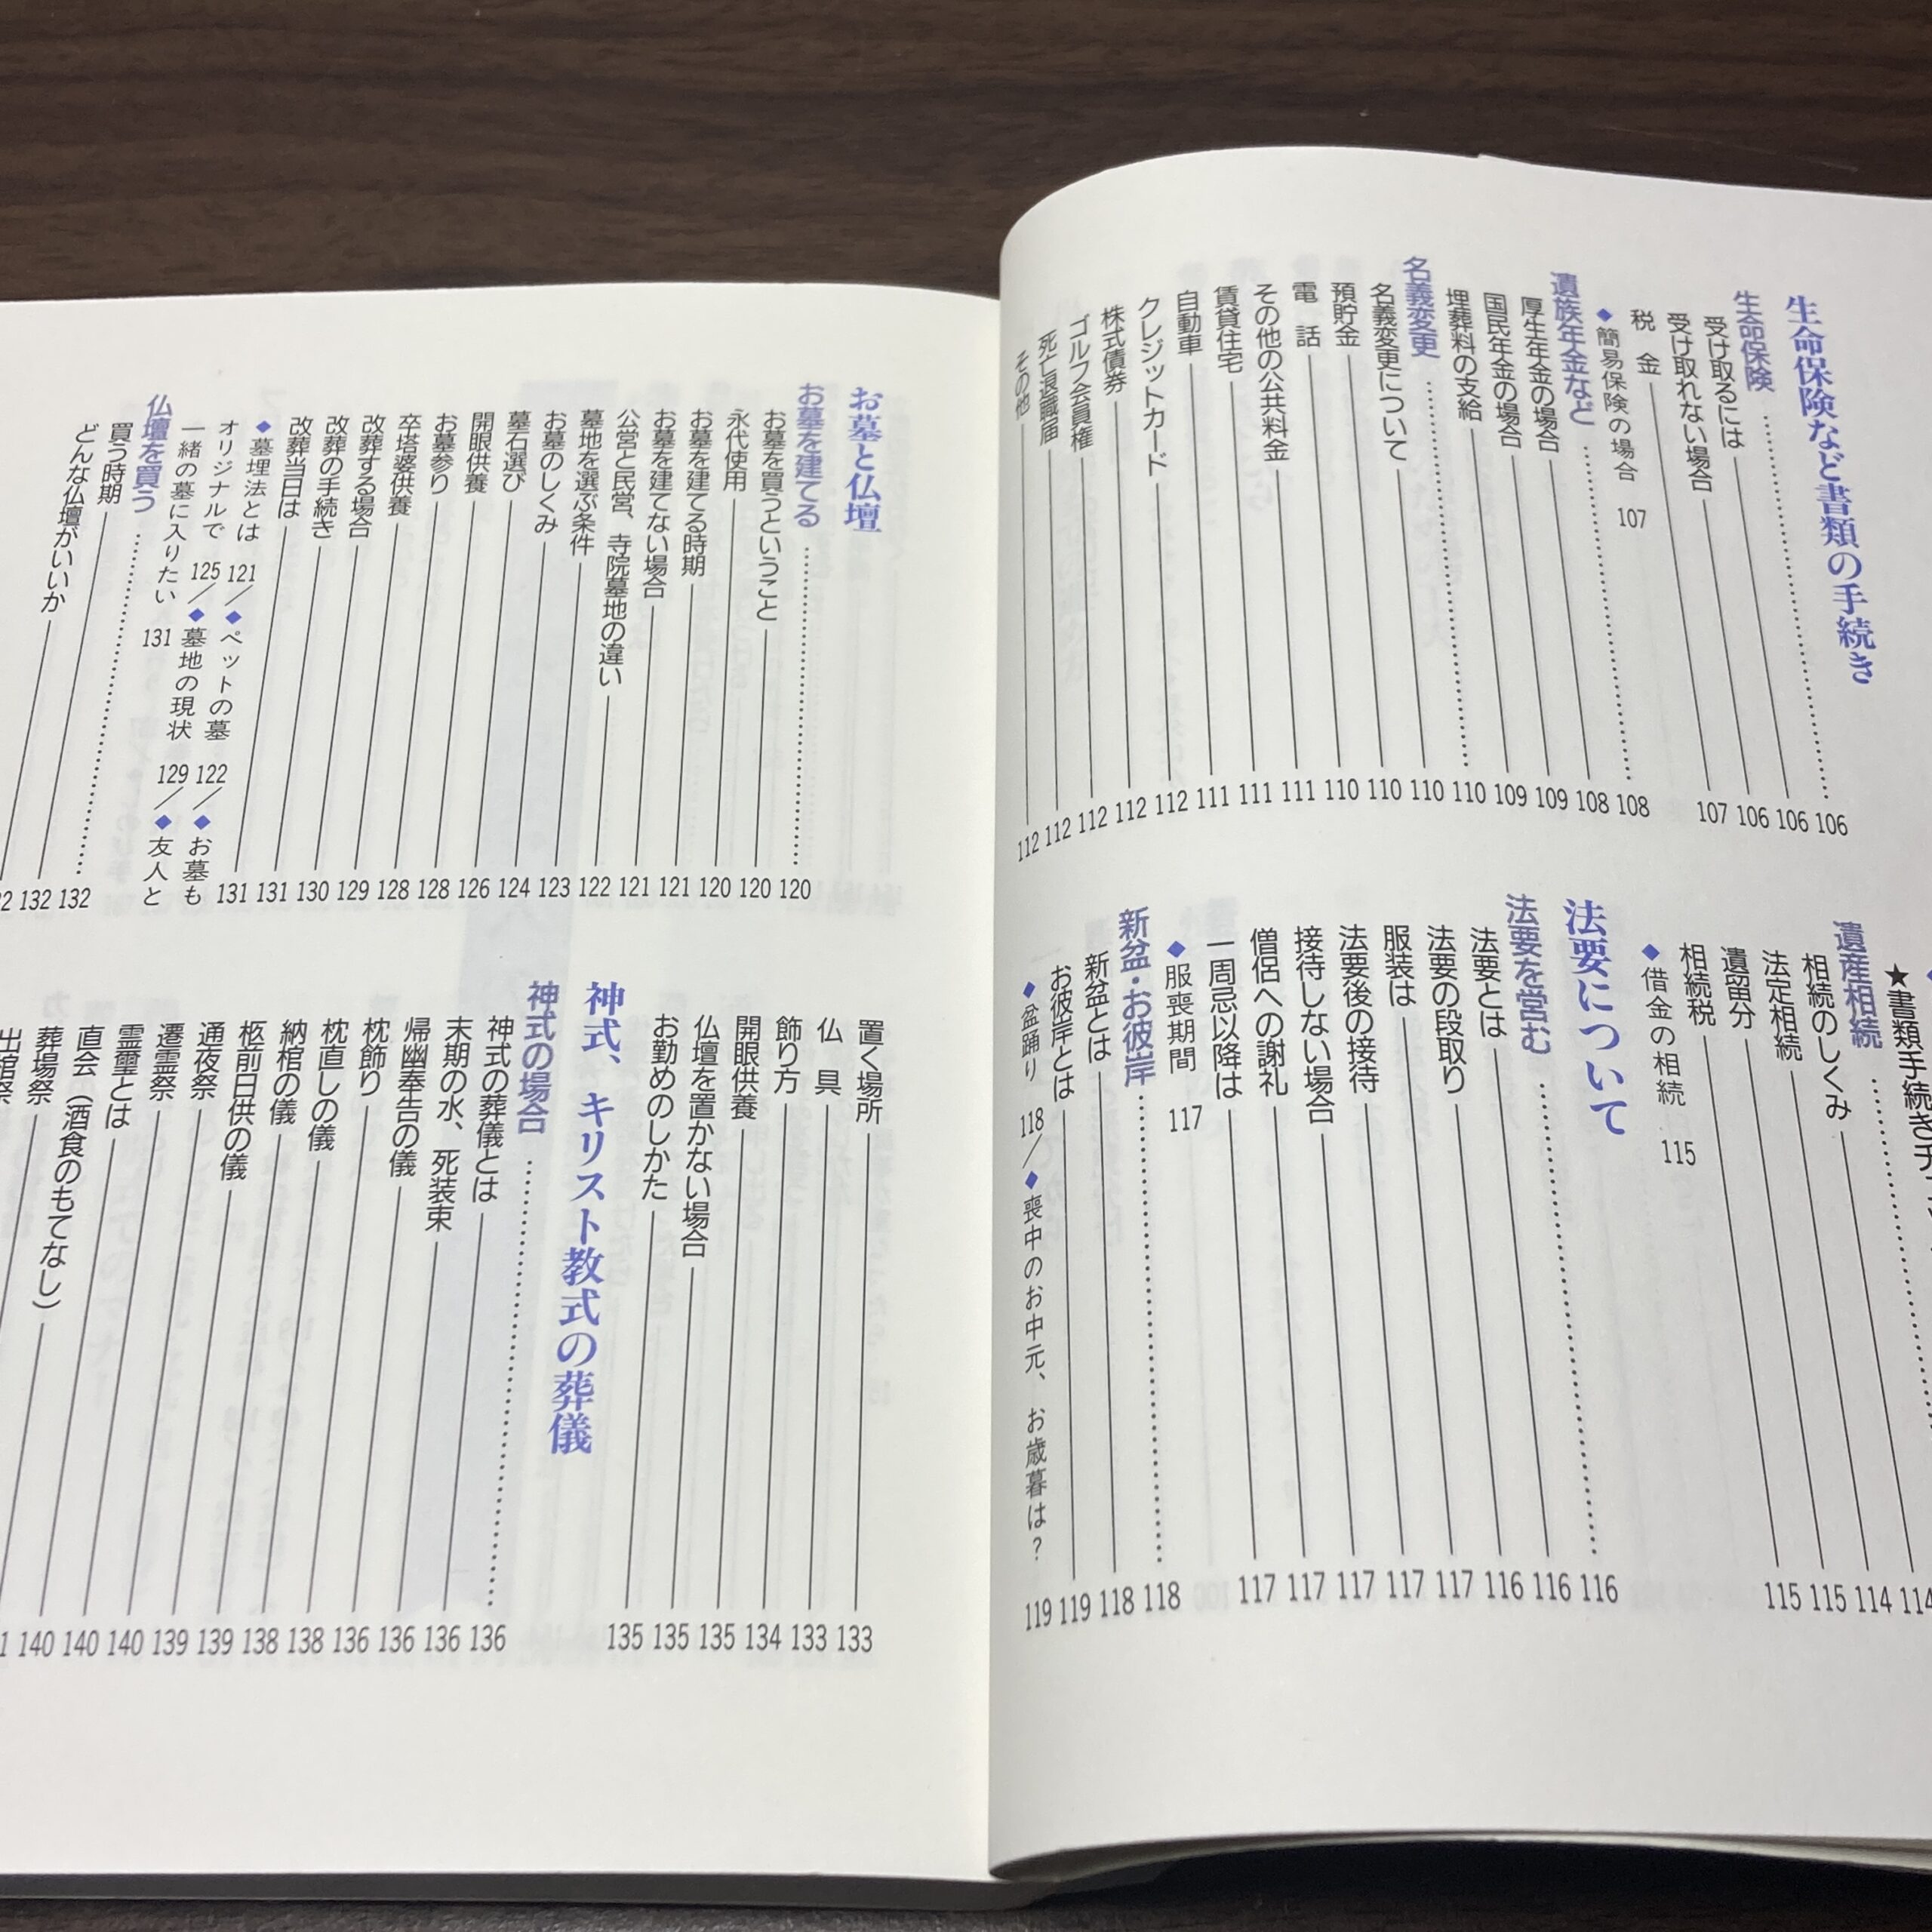 生命保険など書類の手続き
生命保険 106
受け取るには 106
受け取れない場合 106
税 金 107
◆簡易保険の場合 107
遺族年金など 108
厚生年金の場合 108
国民年金の場合 109
埋葬料の支給 109
名義変更 110
名義変更について 110
預貯金 110
電 話 110
その他の公共料金 111
賃貸住宅 111
自動車 111
クレジットカード 112
株式債券 112
ゴルフ会員権 112
死亡退職届 112
その他 112
★書類手続き
遺産相続 114
相続のしくみ 114
法定相続 115
遺留分 115
相続税
◆借金の相続 115
法要について
法要を営む 116
法要とは 116
法要の段取り 116
服装は 117
法要後の接待 117
接待しない場合 117
僧侶への謝礼 117
一周忌以降は 117
◆服喪期間 117
新盆・お彼岸 118
新盆とは 118
お彼岸とは 119
119
◆盆踊り 118/◆喪中のお中元、お歳暮は？
お墓と仏壇
お墓を建てる 120
お墓を買うということ 120
永代使用 120
お墓を建てる時期 121
お墓を建てない場合 121
公営と民営、寺院墓地の違い 122
墓地を選ぶ条件 123
お墓のしくみ 124
墓石選び 126
開眼供養 128
お墓参り 128
卒塔婆供養 129
改葬する場合 130
改葬の手続き 131
改葬当日は 131
◆墓埋法とは 121/◆ペットの墓 122/◆お墓も
オリジナルで 125/◆墓地の現状 129/◆友人と
一緒の墓に入りたい 131
仏壇を買う 132
買う時期 132
どんな仏壇がいいか
置く場所 133
仏 具 133
飾り方 134
開眼供養 135
仏壇を置かない場合 135
お勤めのしかた 135
神式、キリスト教式の葬儀
神式の場合 136
神式の葬儀とは 136
末期の水、死装束 136
帰幽奉告の儀 136
枕飾り 138
枕直しの儀 138
納棺の儀 139
柩前日供の儀 139
通夜祭 140
遷霊祭 140
霊璽とは 140
直会（酒食のもてなし）
葬場祭
出棺祭